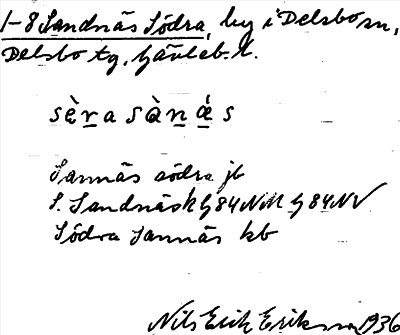 1-8 Sandnäs Södra, by i Delsbo sn,
Delsbo tg, Gävleb. l.
sèra sànás
Sannäs södra jb
S. Sandnäs k G84NM G84NV
Södra Sannäs kb
Nils Erik Eriksson 1936